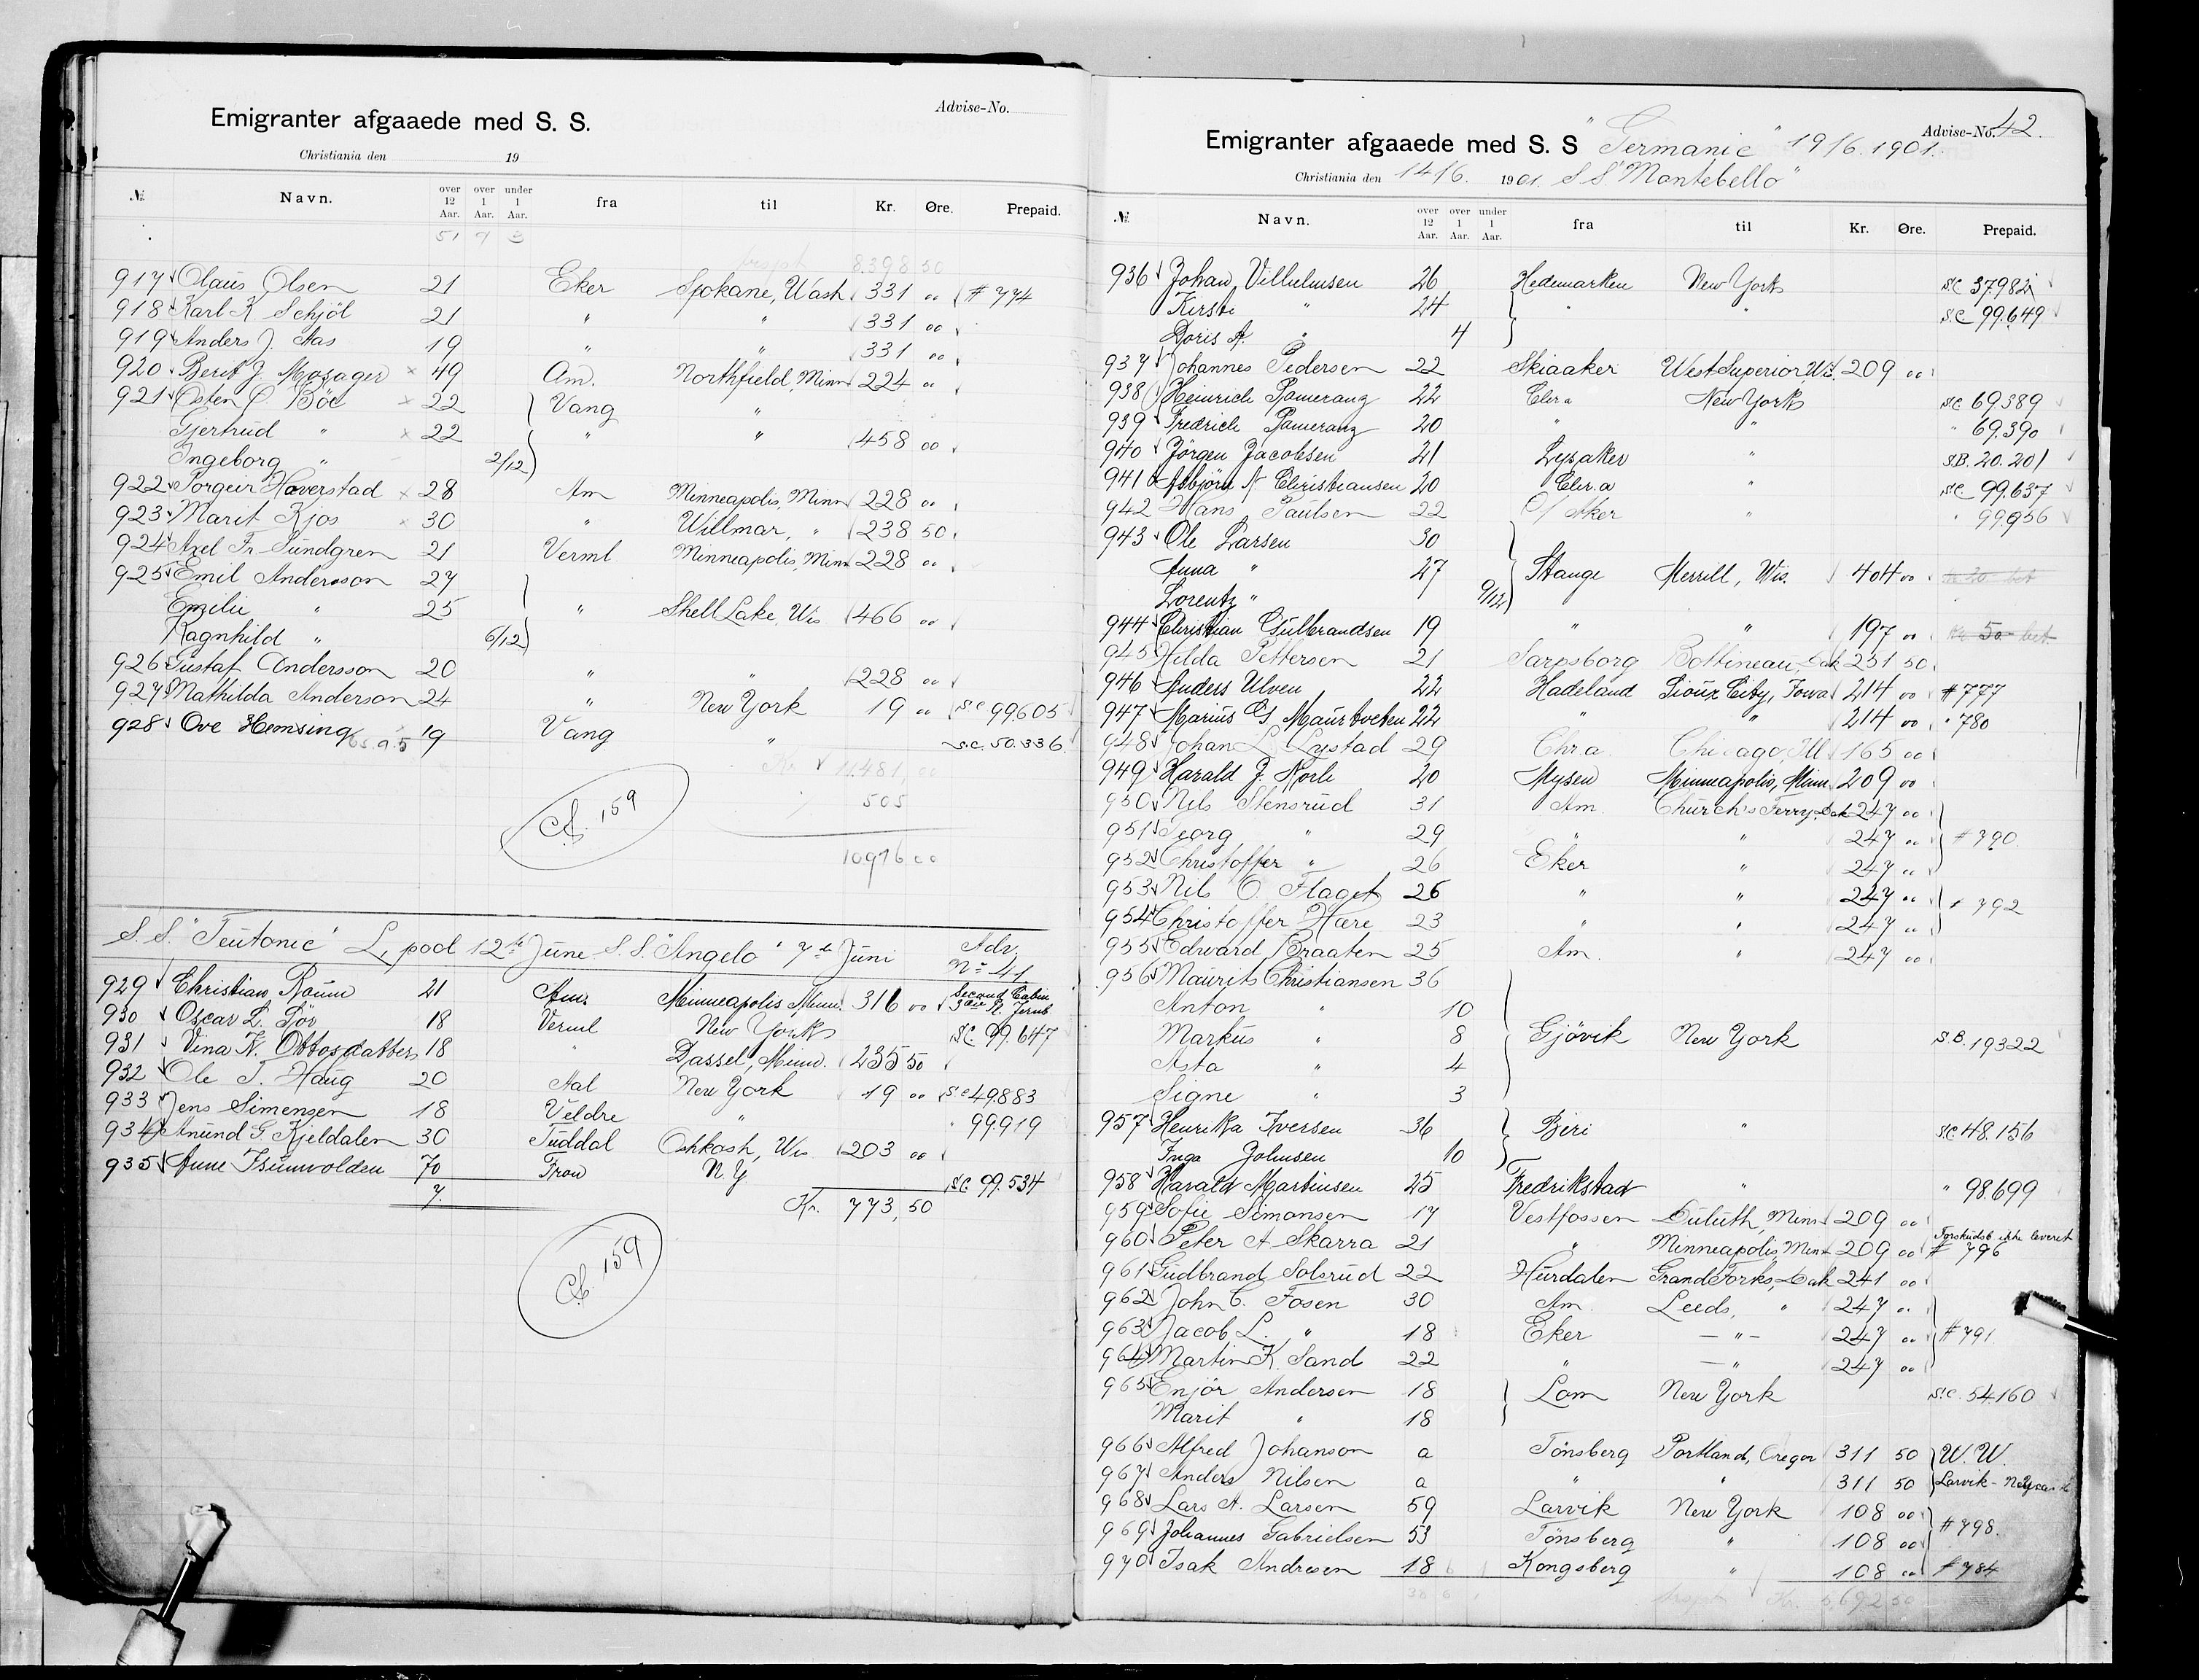 Advise-No.
Emigranter afgaaede med S. S.
Christiania den 19
№ Navn. over 12 Aar. over 1 Aar. under 1 Aar. fra til Kr. Øre. Prepaid.
51 7 3
8.398 50
917 Olaus Olsen 21 Eker Spokane, Wash 331 00 # 774
918 Karl K. Schjöl 21 " " 331 00
919 Anders J. Aas 19 " " 331 00
920 Berit J. Mosager 49 Am. Northfield, Minn 224 00
921 Osten C. Böe 22 Vang "
Gjertrud " 22 " " 458 00
Ingeborg " 2/12
922 Torgeir Haverstad 28 Am Minneapolis, Minn 228 00
923 Marit Kjos 30 " Willmar, " 238 50
924 Axel Fr. Sundgren 21 Verml Minneapolis, Minn 228 00
925 Emil Andersson 27
Emilie " 25 " Shell Lake, Wis 466 00
Ragnhild " 6/12
926 Gustaf Andersson 20 " " 228 00
927 Mathilda Anderson 24 " New York 19 00 S.C 99605
928 Ove Hemsing 19 Vang " S.C. 50.336
Kr. 11.481,00
505
10976 00
159
S.S. "Teutonic" L.pool 12te June S.S. "Angelo" 7de Juni Adv. No 41
929 Christian Röum 21 Am. Minneapolis Minn. 316 00 Second Cabin
930 Oscar L. Tör 18 Verml New York S.C. 99.647
931 Vina K. Ottosdatter 18 " Dassel, Minn. 235 50
932 Ole T. Haug 20 Aal New York 19 00 S.C 49883
933 Jens Simensen 18 Veldre " " 99.919
934 Anund G. Kjeldalen 30 Tuddal Oshkosh, Wis 203 00
935 Anne Isumvolden 70 Fron N.Y S.C. 99.534
7. Kr. 773,50
159
Advise-No. 42.
Emigranter afgaaede med S. S "Germanic" 19/6. 1901.
Christiania den 14/6. 1901. S S "Montebello"
№ Navn. over 12 Aar. over 1 Aar. under 1 Aar. fra til Kr. Øre. Prepaid.
936 Johan Vilhelmsen 26 Hedemarken New York S.C. 37.982
Kirsti " 24 " " S.C. 99.649
Doris A. " 4
937 Johannes Pedersen 22 Skiaaker West Superior, Wis. 209 00
938 Heinrich Pomeranz 22 Chr.a New York S.C. 69.389
939 Fredrich Pomeranz 20 " " " 69.390
940 Jörgen Jacobsen 21 Lysaker " S.B. 20.201
941 Asbjörn N. Christiansen 20 Chr.a " S.C. 99.637
942 Hans Paulsen 22 Ö/ Aker " " 99956
943 Ole Larsen 30
Anna " 27 Stange Merrill, Wis. 404 00
Lorentz " 9/12
944 Christian Gulbrandsen 19 " " 197 00 Kr 50 bet
945 Hilda Pettersen 21 Sarpsborg Bottineau, Dak 251 50
946 Anders Ulven 22 Hadeland Sioux City, Iowa 214 00 # 777
947 Marius G. Maurtveten 22 " " 214 00 " 780
948 Johan L. Lystad 29 Chr.a Chicago, Ill 165 00
949 Harald J. Norli 20 Mysen Minneapolis, Minn 209 00
950 Nils Stensrud 31 Am. Church's Ferry, Dak 247 00
951 Georg " 29 " " 247 00 # 790
952 Christoffer " 26 Eker " 247 00
953 Nils O. Flaget 26 " " 247 00 # 792
954 Christoffer Hære 23 " " 247 00
955 Edward Braaten 25 Am. " 247 00
956 Maurits Christiansen 36
Anton " 10
Markus " 8 Gjövik New York S.B. 19322
Asta " 4
Signe " 3
957 Henrikka Iversen 36 Biri " S.C. 48.156
Inga Johnsen 10
958 Harald Martinsen 25 Fredrikstad " " 98.699
959 Sofie Simonsen 17 Vestfossen Duluth, Minn 209 00
960 Peter A Skarra 21 " Minneapolis, Minn 209 00 Forskudsb ikke leveret # 796
961 Gudbrand Solsrud 22 Hurdalen Grand Forks, Dak 241 00
962 John C. Fosen 30 Am Leeds, " 247 00
963 Jacob L. " 18 Eker — " — 247 00 # 791
964 Martin K. Sand 22 " — " 247 00
965 Enjör Andersen 18 Lom New York S.C. 54.160
Marit " 18
966 Alfred Johanson a Tönsberg Portland, Oregon 311 50 W. W.
967 Anders Nilsen a " " 311 50 Larvik -
968 Lars A. Larsen 59 Larvik New York 108 00
969 Johannes Gabrielsen 53 Tönsberg " 108 00 # 798.
970 Isak Andresen 18 Kongsberg " 108 00 # 784
Kr. 5,692 50